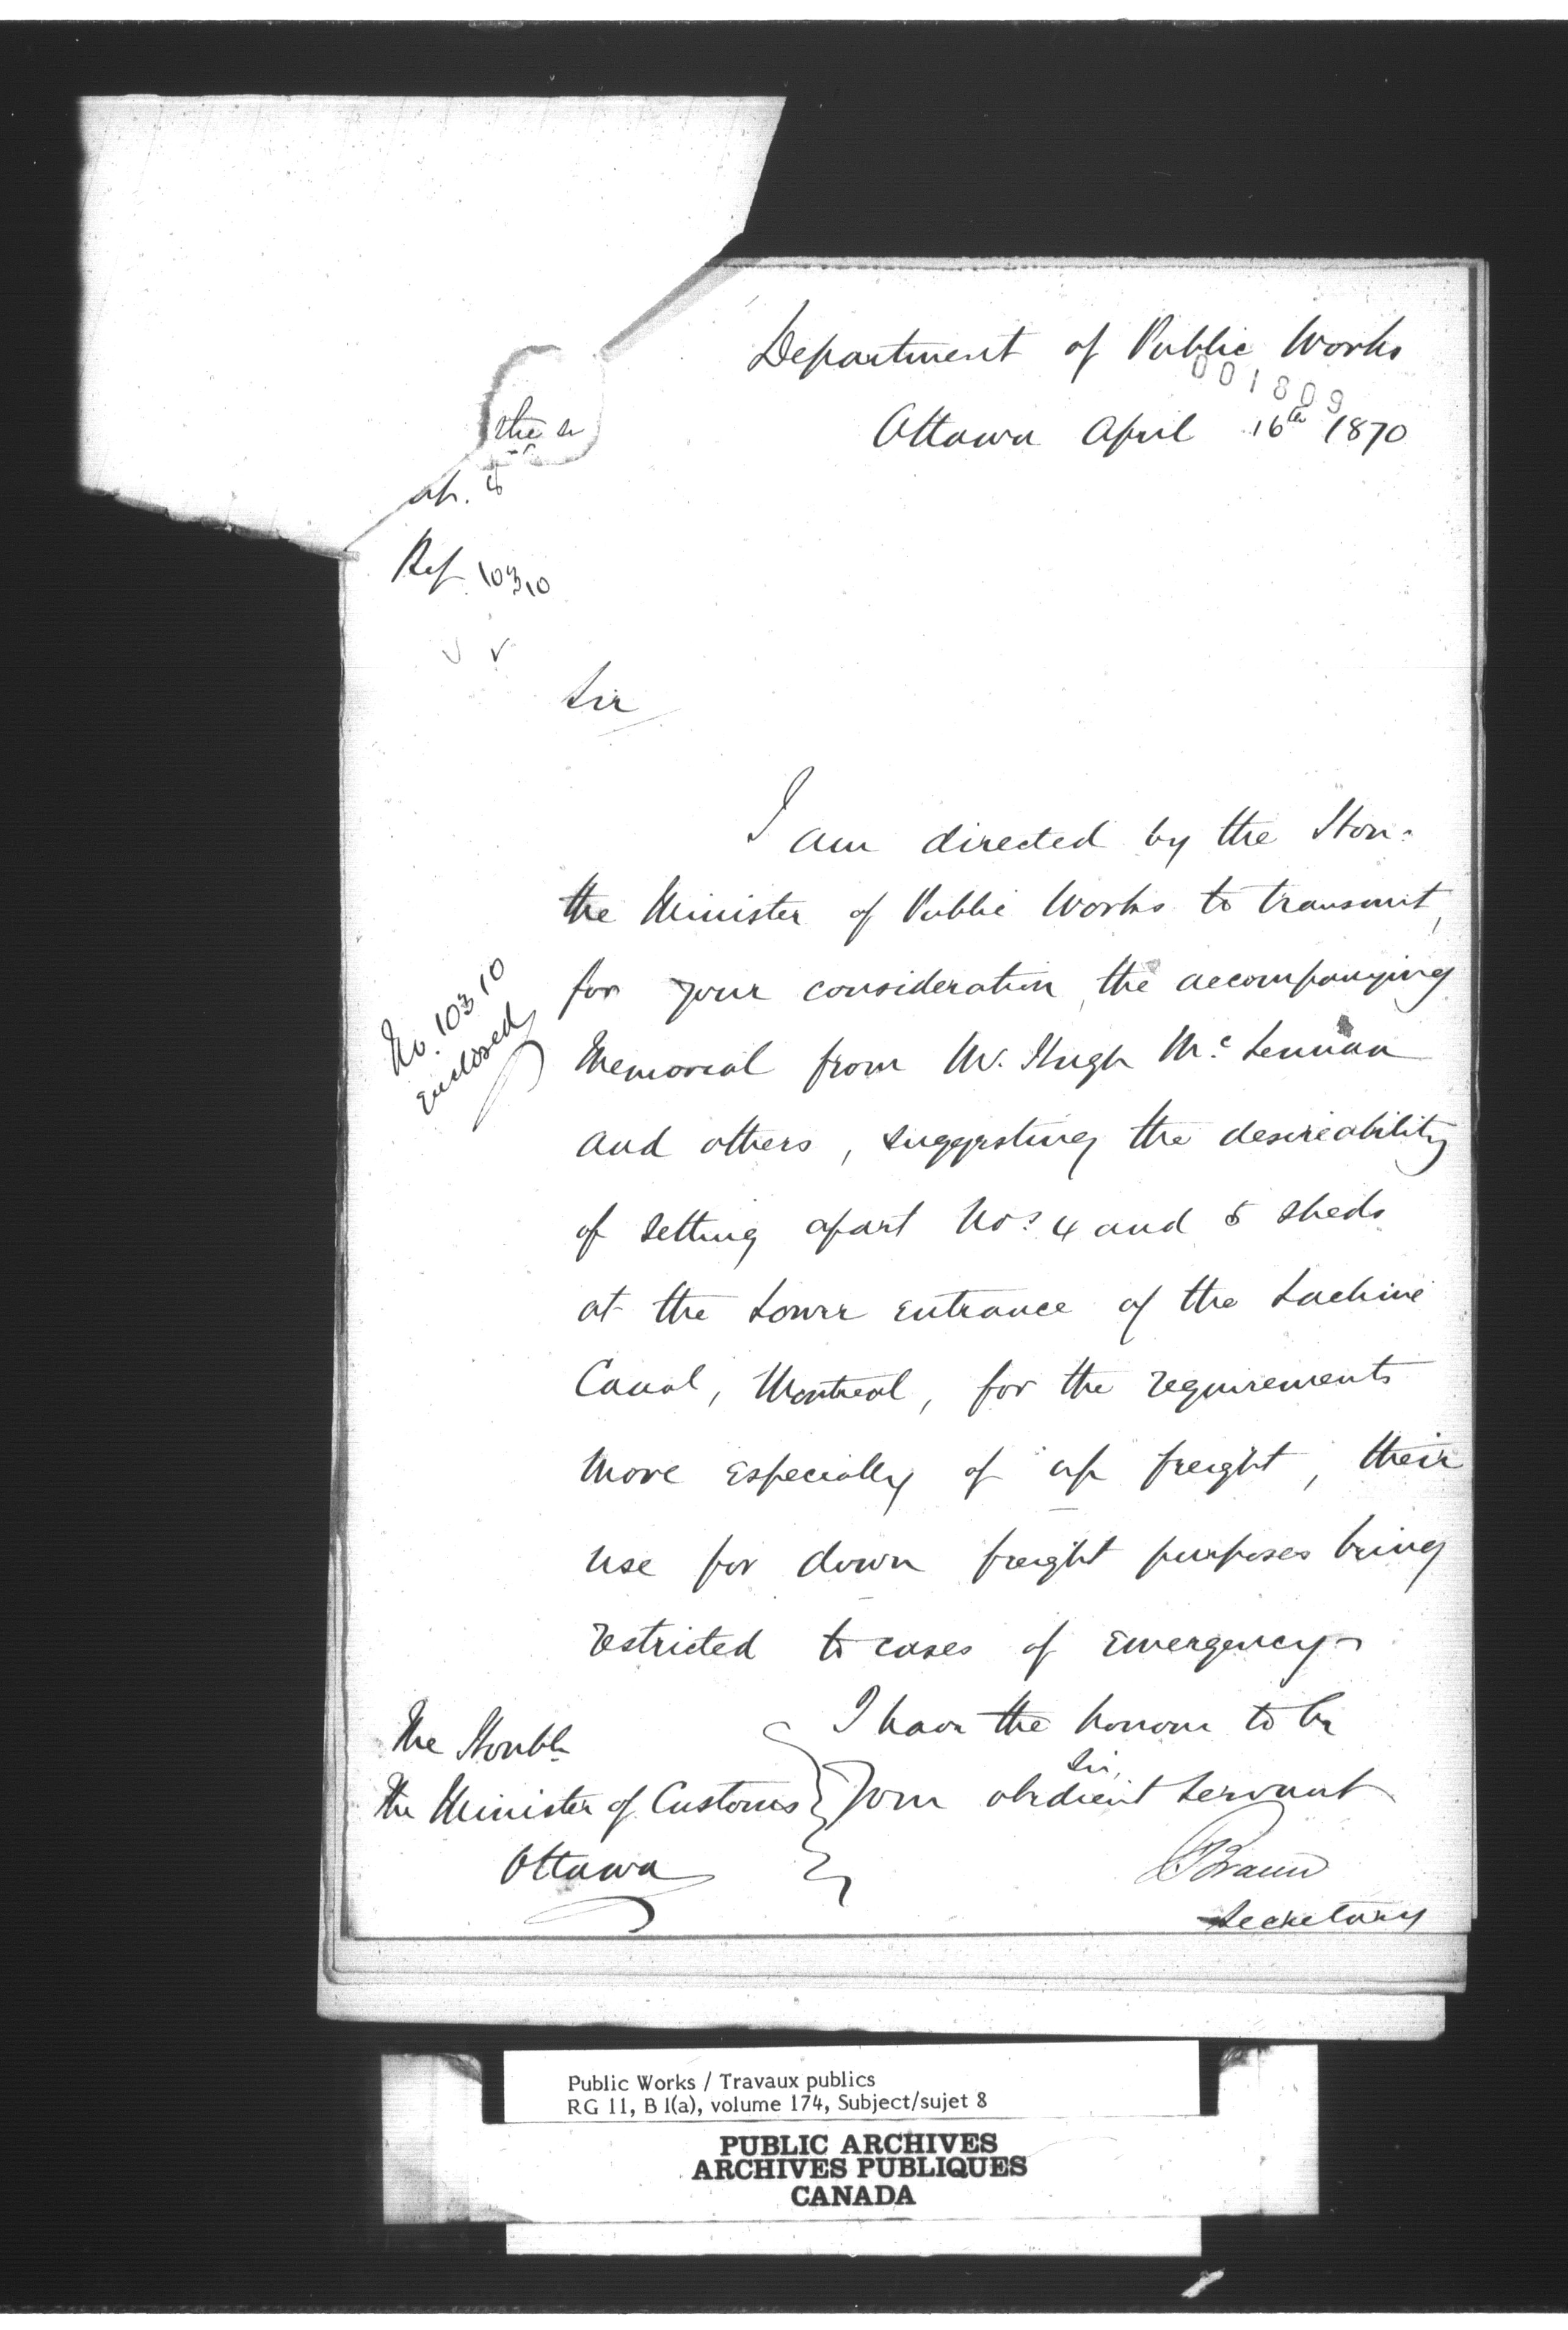 Department of Public Works
001809
Ottawa April 16th 1870
Ref. 10310
Sir
I am directed by the Hon.
the Minister of Public Works to transmit,
for your consideration, the accompanying
Memorial from Mr. Hugh McLennan
and others, suggesting the desireability
of setting apart Nos. 4 and 5 sheds
at the Lower entrance of the Lachine
Canal, Montreal, for the requirements
more especially of up freight, their
use for down freight purposes being
restricted to cases of emergency
No. 10310
enclosed
I have the honour to be
Sir,
Your obedient servant
F Braun
Secretary
The Honble
The Minister of Customs
Ottawa
Public Works / Travaux publics
RG 11, B 1(a), volume 174, Subject/sujet 8
PUBLIC ARCHIVES
ARCHIVES PUBLIQUES
CANADA